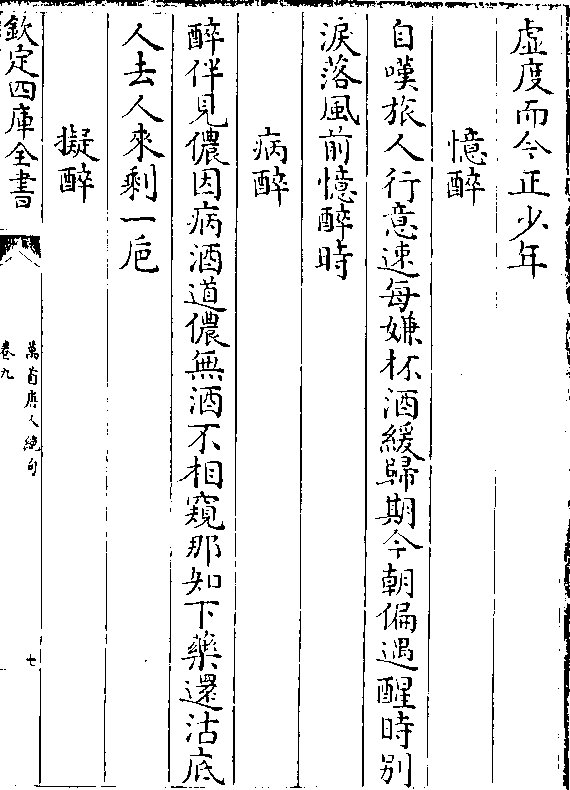 虛度而今正少年
憶醉
自嘆旅人行意速每嫌杯酒緩歸期今朝偏遇醒時别
淚落風前憶醉時
病醉
醉伴見儂因病酒道儂無酒不相窺那知下藥還沽底
人去人來剩一巵
擬醉
欽定四庫全書
萬首唐人絶句
卷九
七